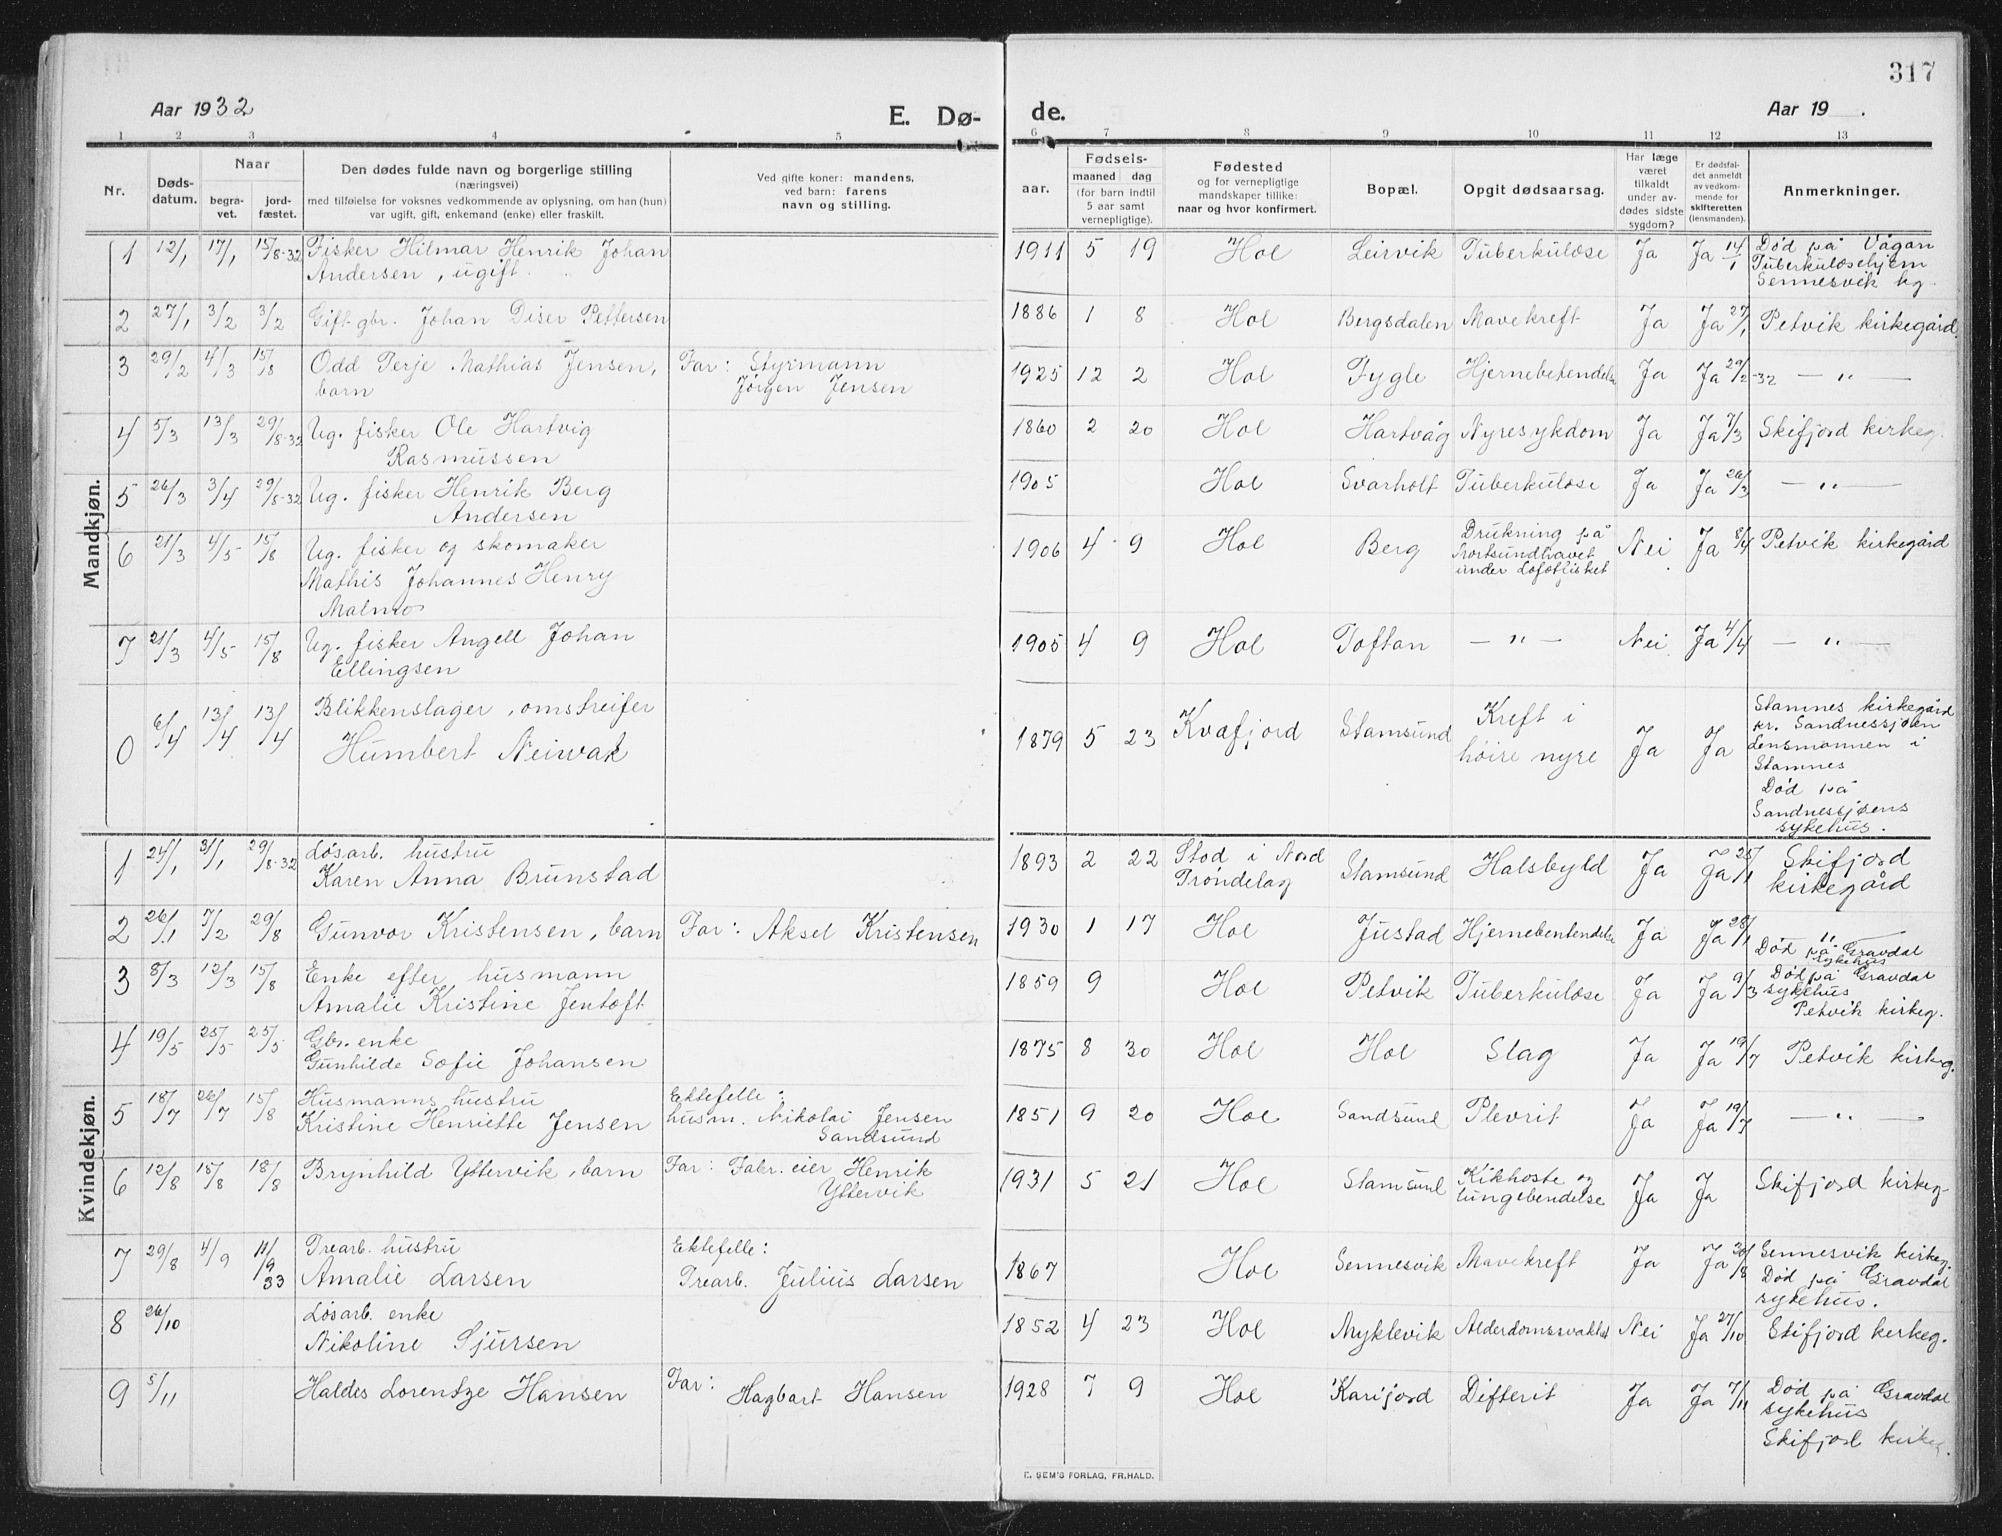 317
Aar 1932
E. Dø-
de.
Aar 19 .
1 2 3 4 5 6 7 8 9 10 11 12 13
Nr.
Døds-
datum.
Naar
begra-
vet.
jord-
fæstet.
Den dødes fulde navn og borgerlige stilling
(næringsvei)
med tilføielse for voksnes vedkommende av oplysning, om han (hun)
var ugift, gift, enkemand (enke) eller fraskilt.
Ved gifte koner: mandens,
ved barn: farens
navn og stilling.
Fødsels-
aar.
maaned dag
(for barn indtil
5 aar samt
vernepligtige).
Fødested
og for vernepligtige
mandskaper tillike:
naar og hvor konfirmert.
Bopæl.
Opgit dødsaarsag.
Har læge
været
tilkaldt
under av-
dødes sidste
sygdom?
Er dødsfal-
det anmeldt
av vedkom-
mende for
skifteretten
(lensmanden).
Anmerkninger.
Mandkjøn.
1 12/1 17/1 15/8-32 Fisker Hilmar Henrik Johan
Andersen, ugift.
1911 5 19 Hol Leirvik Tuberkulose Ja Ja 14/1 Død på Vågan
Tuberkulosehjem
Sennesvik kg.
2 27/1 3/2 3/2 Gift gbr. Johan Diser Pettersen 1886 1 8 Hol Bergsdalen Mavekreft Ja Ja 27/1 Petvik kirkegård.
3 29/2 4/3 15/8 Odd Terje Mathias Jensen,
barn
Far: Styrmann
Jørgen Jensen
1925 12 2 Hol Fygle Hjernebetendelse Ja Ja 29/2-32 — " —
4 5/3 13/3 29/8-32 Ug. fisker Ole Hartvig
Rasmussen
1860 2 20 Hol Hartvåg Nyresykdom Ja Ja 7/3 Skifjord kirkeg.
5 26/3 3/4 29/8-32 Ug. fisker Henrik Berg
Andersen
1905 Hol Svarholt Tuberkulose Ja Ja 26/3 — " —
6 21/3 4/5 15/8 Ug. fisker og skomaker
Mathis Johannes Henry
Malmo
1906 4 9 Hol Berg Drukning på
Nortsundhavet
under Lofotfisket
Nei Ja 8/4 Petvik kirkegård
7 21/3 4/5 15/8 Ug. fisker Angell Johan
Ellingsen
1905 4 9 Hol Toftan — " — Nei Ja 4/4 — " —
0 6/4 13/4 13/4 Blikkenslager, omstreifer
Humbert Neiwak
1879 5 23 Kvæfjord Stamsund Kreft i
høire nyre
Ja Ja Stamnes kirkegård
pr. Sandnessjøen
Lensmannen i
Stamnes
Død på
Sandnessjøens
sykehus.
Kvindekjøn.
1 24/1 31/1 29/8-32 Løsarb. hustru
Karen Anna Brunstad
1893 2 22 Stod i Nord
Trøndelag
Stamsund Halsbyld Ja Ja 25/1 Skifjord
kirkegård
2 26/1 7/2 29/8 Gunvor Kristensen, barn Far: Aksel Kristensen 1930 1 17 Hol Justad Hjernebentendelse Ja Ja 28/1 "
Død på Gravdal
sykehus
3 8/3 12/3 15/8 Enke efter husmann
Amalie Kristine Jentoft
1859 9 Hol Petvik Tuberkulose Ja Ja 9/3 Død på Gravdal
sykehus
Petvik kirkeg.
4 19/5 25/5 25/5 Gbr. enke
Gunhilde Sofie Johansen
1875 8 30 Hol Hol Slag Ja Ja 19/7 Petvik kirkeg.
5 18/7 26/7 15/8 Husmanns hustru
Kristine Henriette Jensen
Ektefelle:
husm. Nikolai Jensen
Sandsund
1851 9 20 Hol Sandsund Plevrit Ja Ja 19/7 — " —
6 12/8 15/8 18/8 Brynhild Yttervik, barn Far: Fabr. eier Henrik
Yttervik
1931 5 21 Hol Stamsund Kikhoste og
lungebendelse
Ja Ja Skifjord kirkeg.
7 29/8 4/9 11/9 33 Trearb. hustru
Amalie Larsen
Ektefelle:
Trearb. Julius Larsen
1867 Hol Sennesvik Mavekreft Ja Ja 30/8 Sennesvik kirkeg.
Død på Gravdal
sykehus.
8 26/10 Løsarb. enke
Nikoline Sjursen
1852 4 23 Hol Myklevik Alderdomssvakhet Nei Ja 27/10 Skifjord kirkeg.
9 5/11 Haldes Lorentze Hansen Far:
Hagbart Hansen
1928 7 9 Hol Karijord Difterit Ja Ja 7/11 Død på Gravdal
sykehus
Skifjord kirkeg.
E. SEM'S FORLAG, FR.HALD.